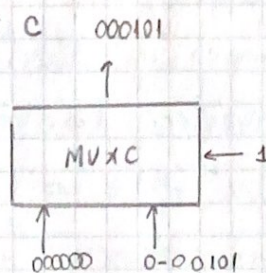 C 000101
MUXC 1
000000 0-00101